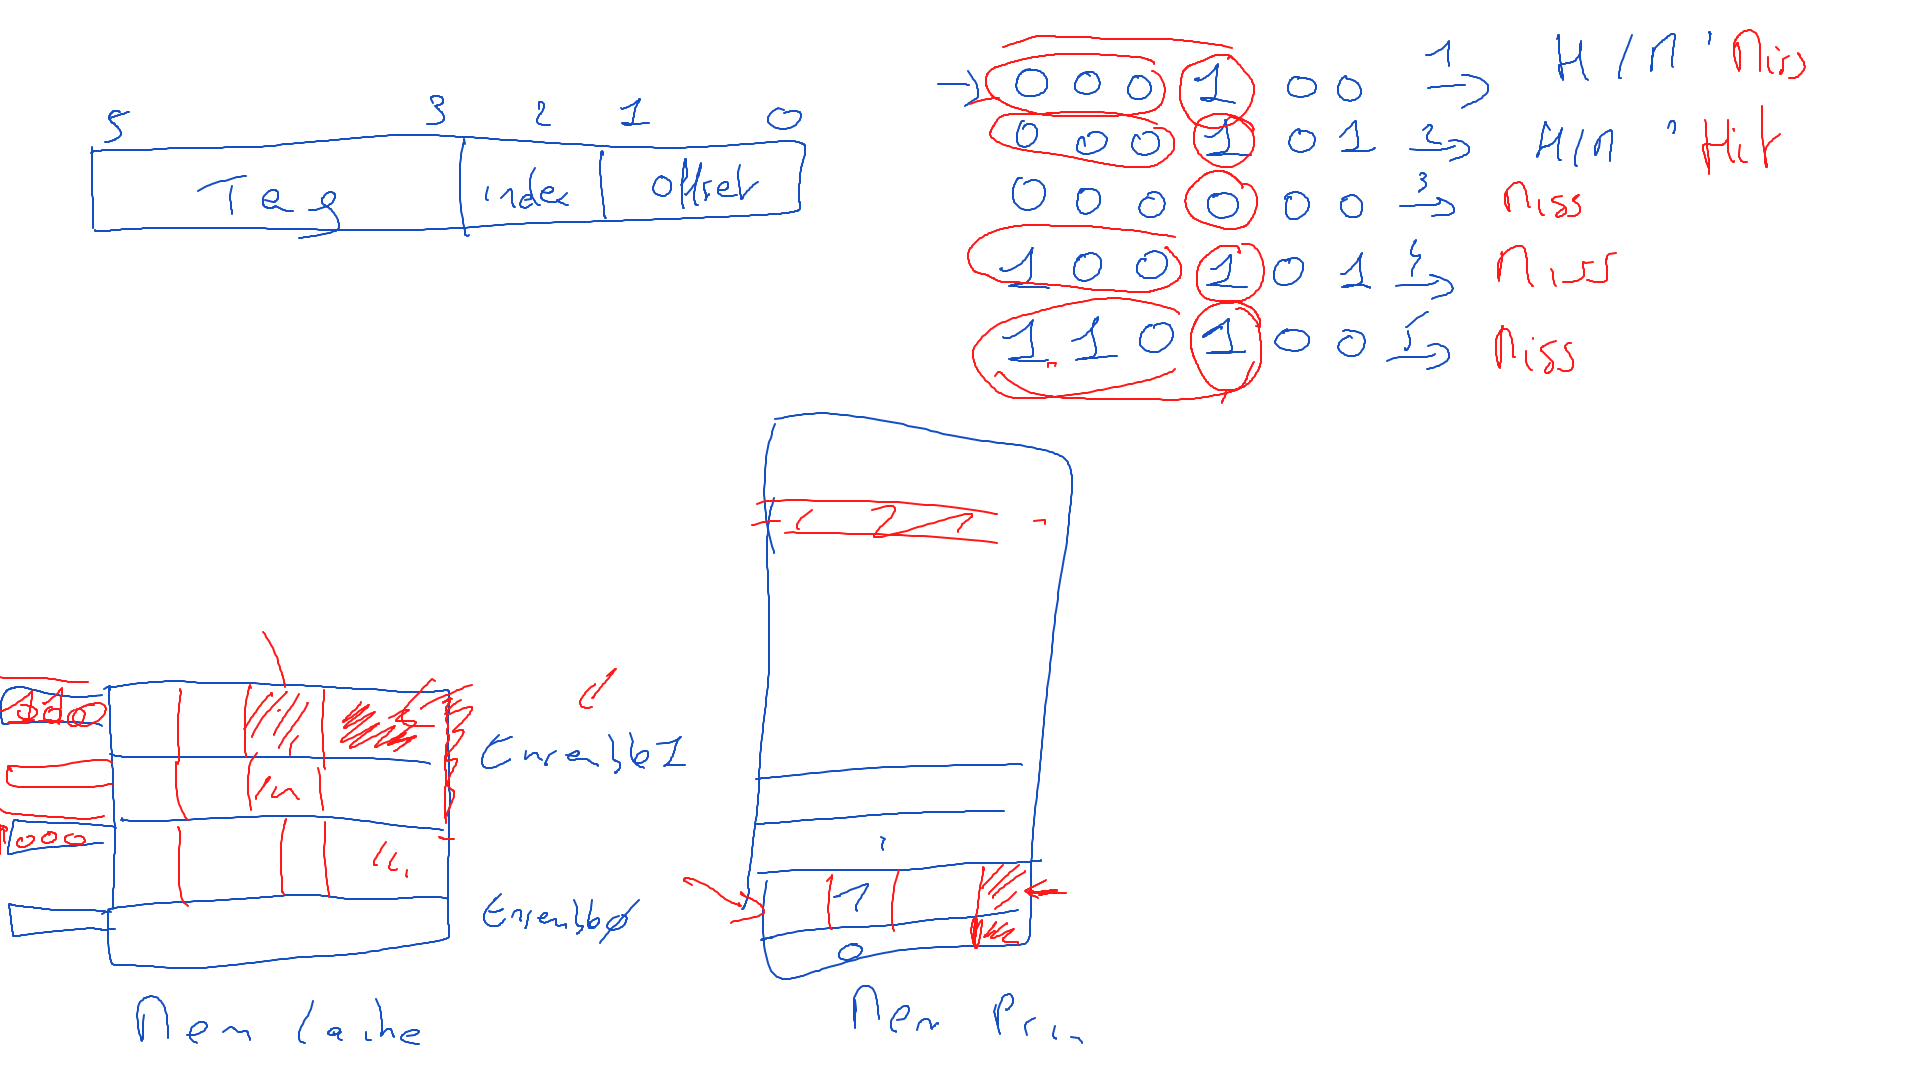 5 3 2 1 0
Tag index Offset
0 0 0 1 0 0 1 H / M ' Miss
0 0 0 1 0 1 2 H/M ' Hit
0 0 0 0 0 0 3 Miss
1 0 0 1 0 1 4 Miss
1 1 0 1 0 0 5 Miss
110
Ensemble 1
000
Ensemble 0
1
0
Mem Cache
Mem Prin